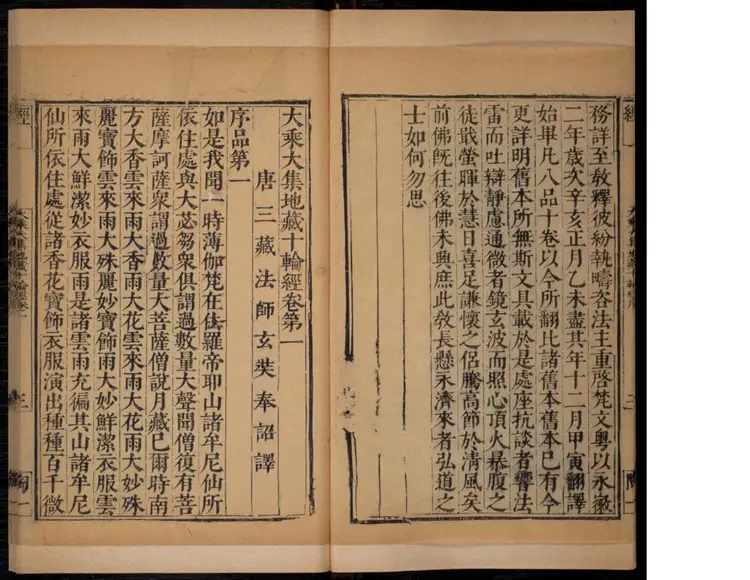 務詳至敎釋彼紛執疇咨法主重啓梵文粵以永徽
二年歲次辛亥正月乙未盡其年十二月甲寅翻譯
始畢凡八品十卷以今所翻比諸舊本舊本已有今
更詳明舊本所無斯文具載於是處座抗談者響法
雷而吐辯靜慮通微者鏡玄波而照心頂火暴腹之
徒戢螢暉於慧日喜足謙懷之侶騰高節於淸風矣
前佛旣往後佛未興庶此敎長懸永濟來者弘道之
士如何勿思
大乘大集地藏十輪經卷第一
唐三藏法師玄奘奉詔譯
序品第一
如是我聞一時薄伽梵在佉羅帝耶山諸牟尼仙所
依住處與大苾芻衆俱謂過數量大聲聞僧復有菩
薩摩訶薩衆謂過數量大菩薩僧說月藏已爾時南
方大香雲來雨大香雨大花雲來雨大花雨大妙殊
麗寶飾雲來雨大殊麗妙寶飾雨大妙鮮潔衣服雲
來雨大鮮潔妙衣服雨是諸雲雨充徧其山諸牟尼
仙所依住處從諸香花寶飾衣服演出種種百千微
經
三